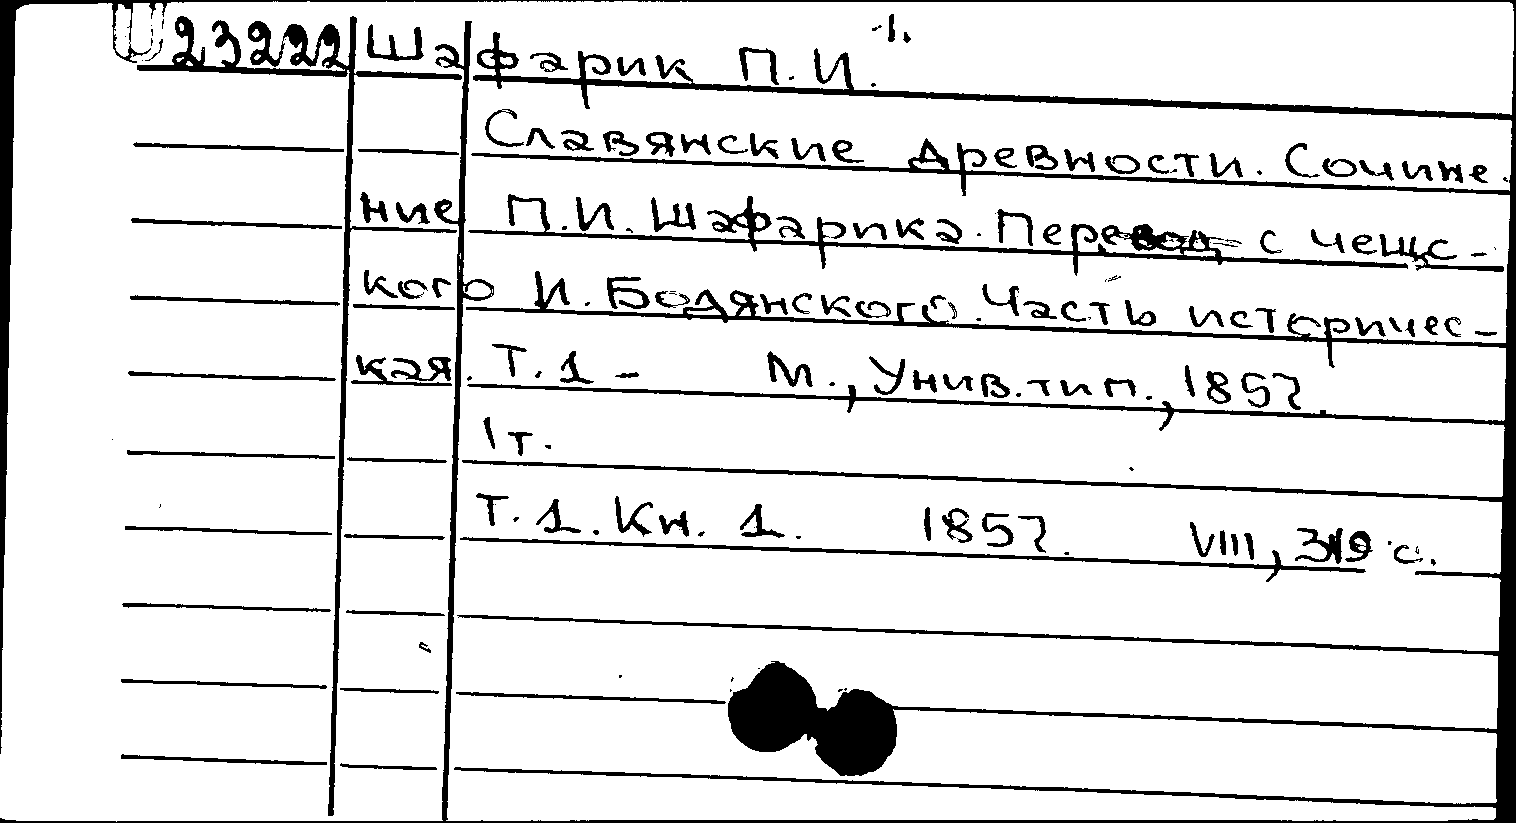 1.
23222 Шафарик П.И.
Славянские древности. Сочине-
ние П.И. Шафарика. Перевод с чешс-
кого И. Бодянского. Часть историчес-
кая. Т. 1 - М., Унив. тип., 1857.
1 т.
Т. 1. Кн. 1. 1857. VIII, с.